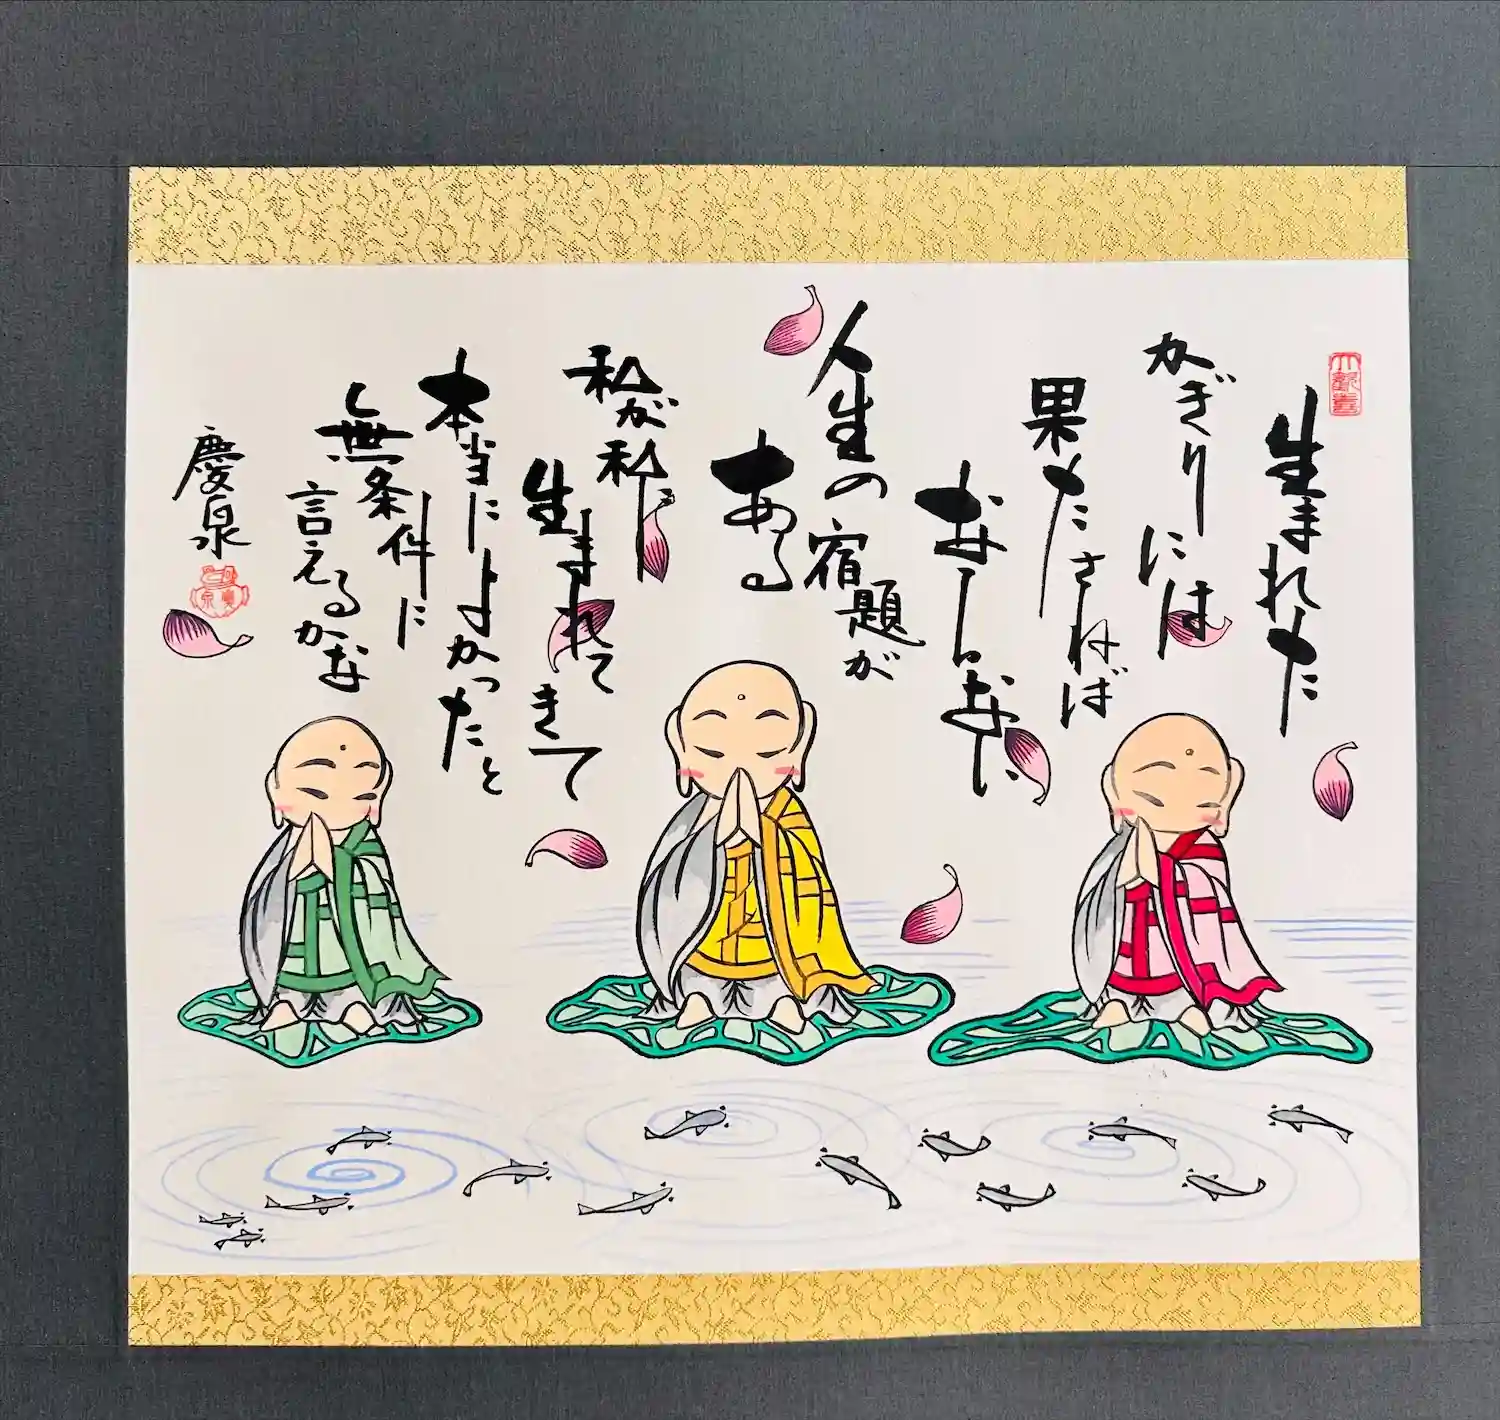 生まれた
かぎりには
果たさねば
なしなし
人生の宿題が
ある
私が私に
生まれてきて
本当によかったと
無条件に
言えるかな
慶泉
慶泉